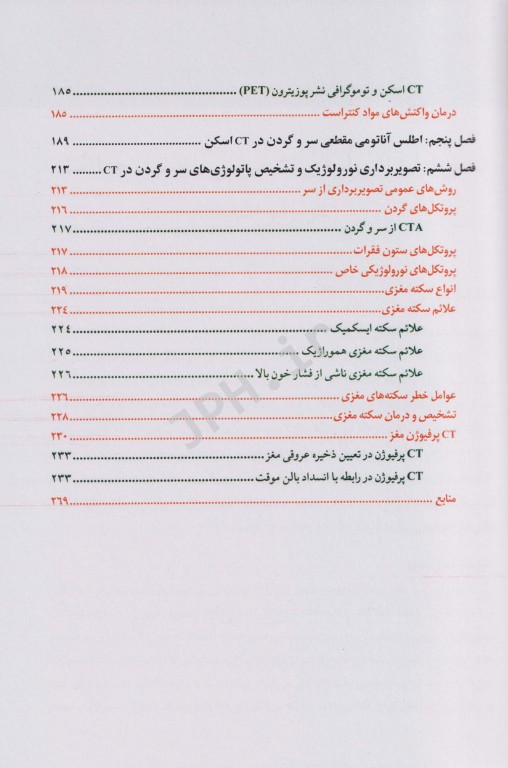 CT اسکن و توموگرافی نشر پوزیترون (PET) ........ ۱۸۵
درمان واکنش‌های مواد کنتراست ........ ۱۸۵
فصل پنجم: اطلس آناتومی مقطعی سر و گردن در CT اسکن ........ ۱۸۹
فصل ششم: تصویربرداری نورولوژیک و تشخیص پاتولوژی‌های سر و گردن در CT ........ ۲۱۳
روش‌های عمومی تصویربرداری از سر ........ ۲۱۳
پروتکل‌های گردن ........ ۲۱۶
CTA از سر و گردن ........ ۲۱۷
پروتکل‌های ستون فقرات ........ ۲۱۷
پروتکل‌های نورولوژیکی خاص ........ ۲۱۸
انواع سکته مغزی ........ ۲۱۹
علائم سکته مغزی ........ ۲۲۴
علائم سکته ایسکمیک ........ ۲۲۴
علائم سکته مغزی هموراژیک ........ ۲۲۵
علائم سکته مغزی ناشی از فشار خون بالا ........ ۲۲۶
عوامل خطر سکته‌های مغزی ........ ۲۲۶
تشخیص و درمان سکته مغزی ........ ۲۲۸
CT پرفیوژن مغز ........ ۲۳۰
CT پرفیوژن در تعیین ذخیره عروقی مغز ........ ۲۳۳
CT پرفیوژن در رابطه با انسداد بالن موقت ........ ۲۳۳
منابع ........ ۲۶۹
JPH.ir